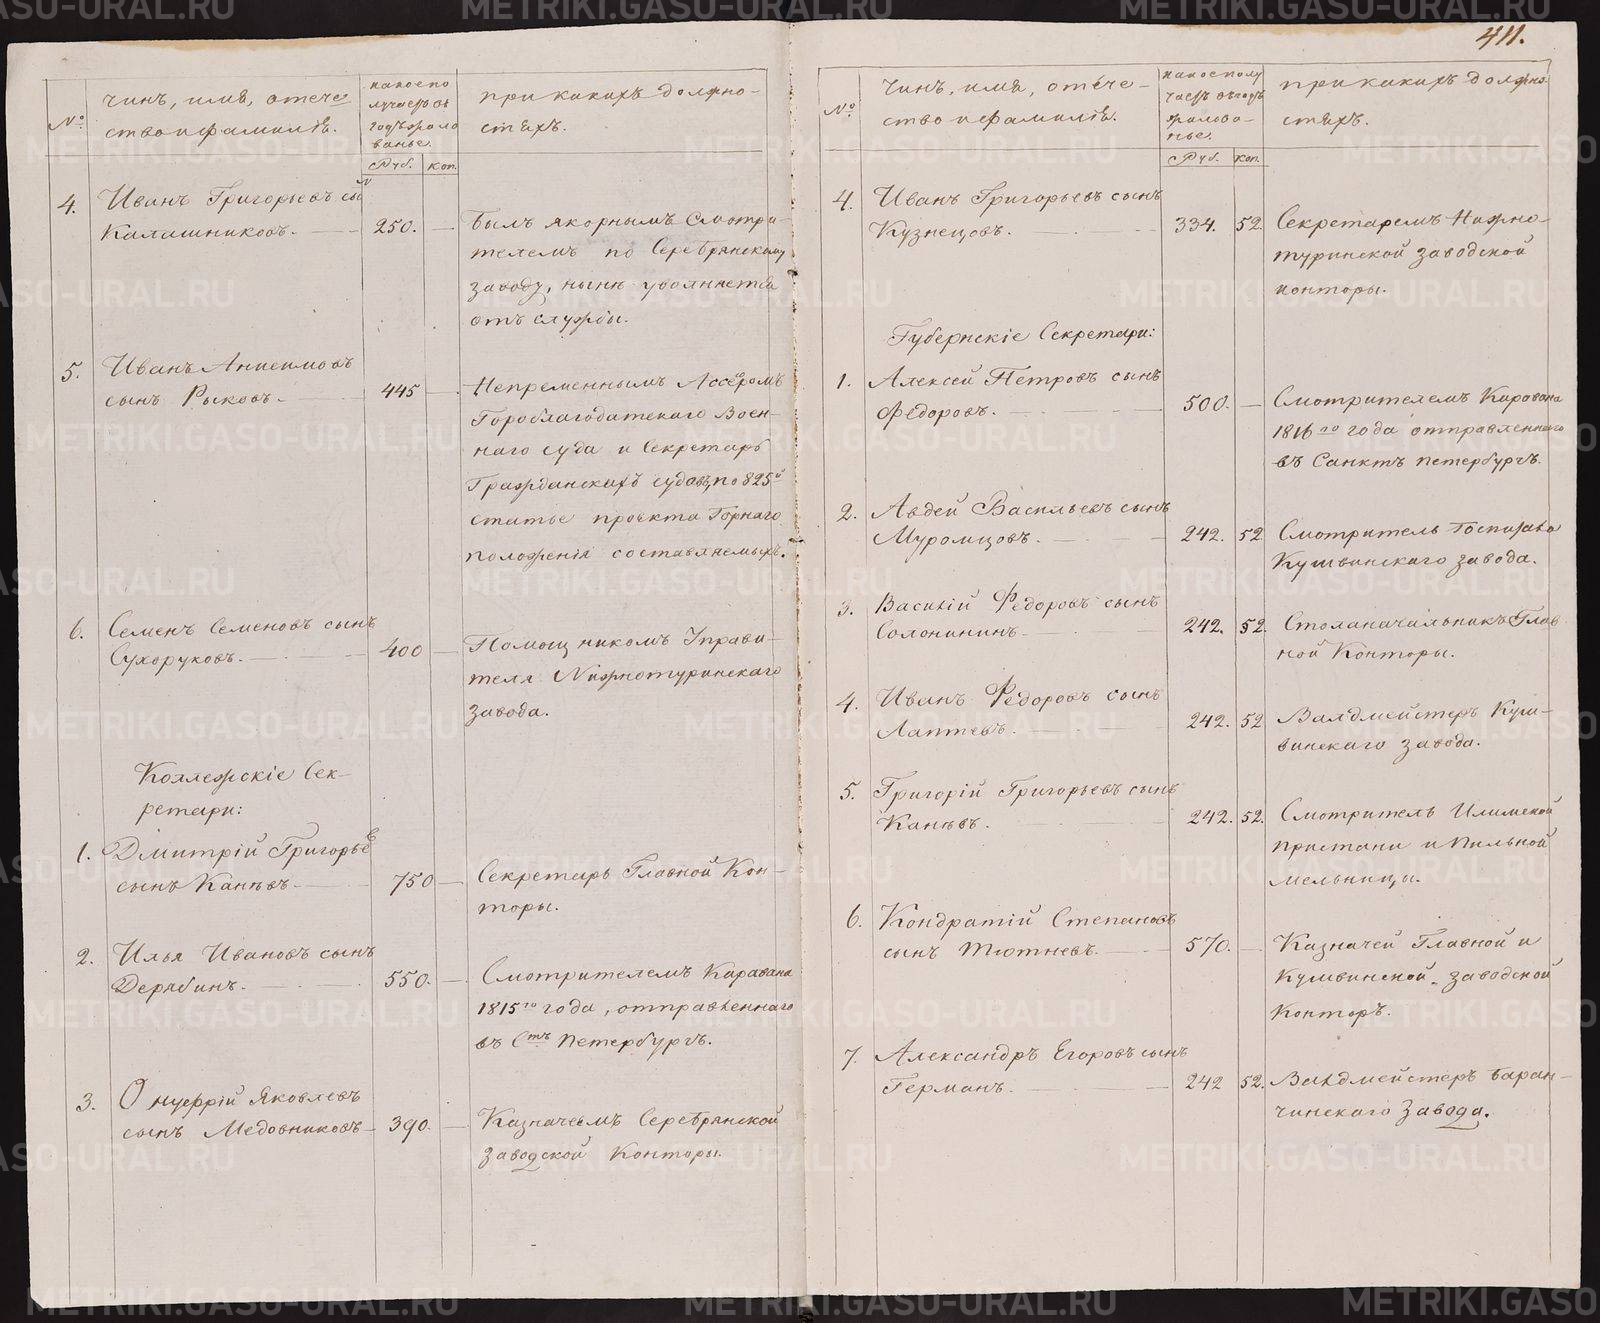 411.
№
чинъ, имя, отече-
ство и фамилія.
какое по
лучаетъ въ
годъ жало
ванье.
Руб. коп.
при какихъ должно-
стяхъ.
4. Иванъ Григорьевъ сынъ
Калашниковъ. 250.
Былъ якорнымъ Смотри-
телемъ по Серебрянскому
заводу, нынѣ увольняется
отъ службы.
5. Иванъ Анисимовъ
сынъ Рыковъ. 445
Непременнымъ Ассе́ромъ
Гороблагодатскаго Воен-
наго суда и Секретарь
Гражданскихъ судовъ, по 825й
статье проекта Горнаго
положенія составляемыхъ.
6. Семенъ Семеновъ сынъ
Сухоруковъ. 400
Помощникомъ Управи-
теля Нижнотуринскаго
завода.
Коллежскіе Сек-
ретари:
1. Дмитрій Григорьев
сынъ Канѣвъ. 750
Секретарь Главной Кон-
торы.
2. Илья Ивановъ сынъ
Дерябинъ. 550.
Смотрителемъ Каравана
1815го года, отправленнаго
въ Стъ Петербургъ.
3. Онуфрій Яковлевъ
сынъ Медовниковъ 390.
Казначеемъ Серебрянской
заводской Конторы.
№
чинъ, имя, отече-
ство и фамилія.
какое полу
чаетъ въ годъ
жалова-
нье.
Руб. коп.
при какихъ должно-
стяхъ.
4. Иванъ Григорьевъ сынъ
Кузнецовъ. 334. 52.
Секретаремъ Нижно-
туринской заводской
конторы.
Губернскіе Секретари:
1. Алексей Петровъ сынъ
Федоровъ. 500.
Смотрителемъ Карована
1816го года отправленнаго
въ Санктъ петербургъ.
2. Авдей Васильевъ сынъ
Муромцовъ. 242. 52
Смотритель Госпиталя
Кушвинскаго завода.
3. Василій Федоровъ сынъ
Солонининъ. 242. 52.
Столаначальникъ Глав
ной Конторы.
4. Иванъ Федоровъ сынъ
Лаптевъ. 242. 52
Валдмейстеръ Куш-
винскаго завода.
5. Григорій Григорьевъ сынъ
Канѣвъ. 242. 52.
Смотритель Илимской
пристани и Пильной
мельницы.
6. Кондратій Степановъ
сынъ Тютневъ. 570.
Казначей Главной и
Кушвинской заводской
Конторъ.
7. Александръ Егоровъ сынъ
Германъ. 242 52.
Валдмейстеръ Баран-
чинскаго завода.
METRIKI.GASO-URAL.RU